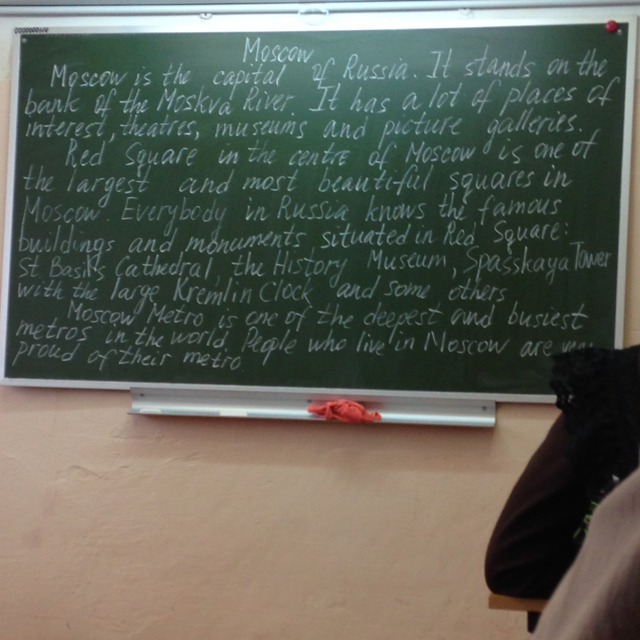 Moscow
Moscow is the capital of Russia. It stands on the
bank of the Moskva River. It has a lot of places of
interest, theatres, museums and picture galleries.
Red Square in the centre of Moscow is one of
the largest and most beautiful squares in
Moscow. Everybody in Russia knows the famous
buildings and monuments situated in Red Square:
St Basil's Cathedral, the History Museum, Spasskaya Tower
with the large Kremlin Clock and some others
Moscow Metro is one of the deepest and busiest
metros in the world. People who live in Moscow are
proud of their metro.